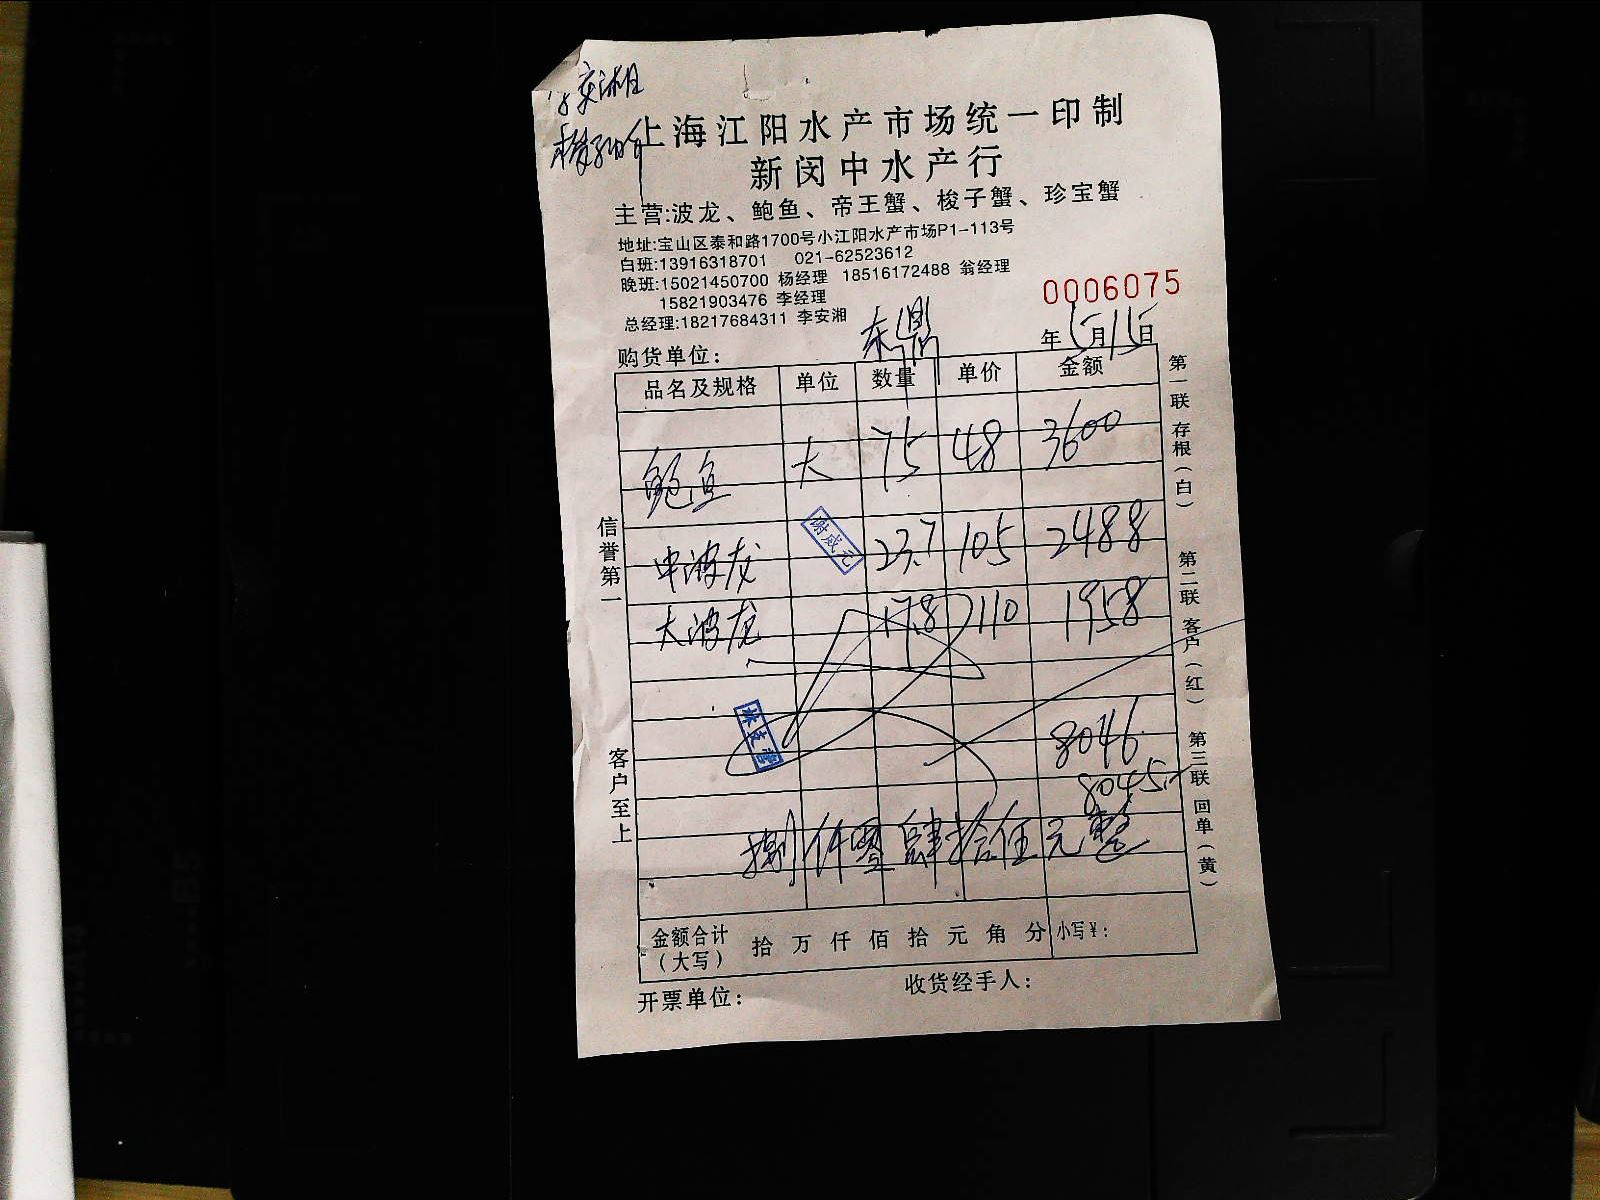 上海江阳水产市场统一印制
新闵中水产行
主营:波龙、鲍鱼、帝王蟹、梭子蟹、珍宝蟹
地址:宝山区泰和路1700号小江阳水产市场P1-113号
白班:13916318701 021-62523612
晚班:15021450700 杨经理 18516172488 翁经理
15821903476 李经理
0006075
总经理:18217684311 李安湘
购货单位: 东鼎 年 5月15日
品名及规格 单位 数量 单价 金额
鲍鱼 大 75 48 3600
中波龙 23.7 105 2488
谢成元
大波龙 17.8 110 1958
8046
8045
捌仟零肆拾伍元整
金额合计(大写) 拾 万 仟 佰 拾 元 角 分 小写¥:
开票单位: 收货经手人:
信誉第一
客户至上
第一联 存根(白)
第二联 客户(红)
第三联 回单(黄)